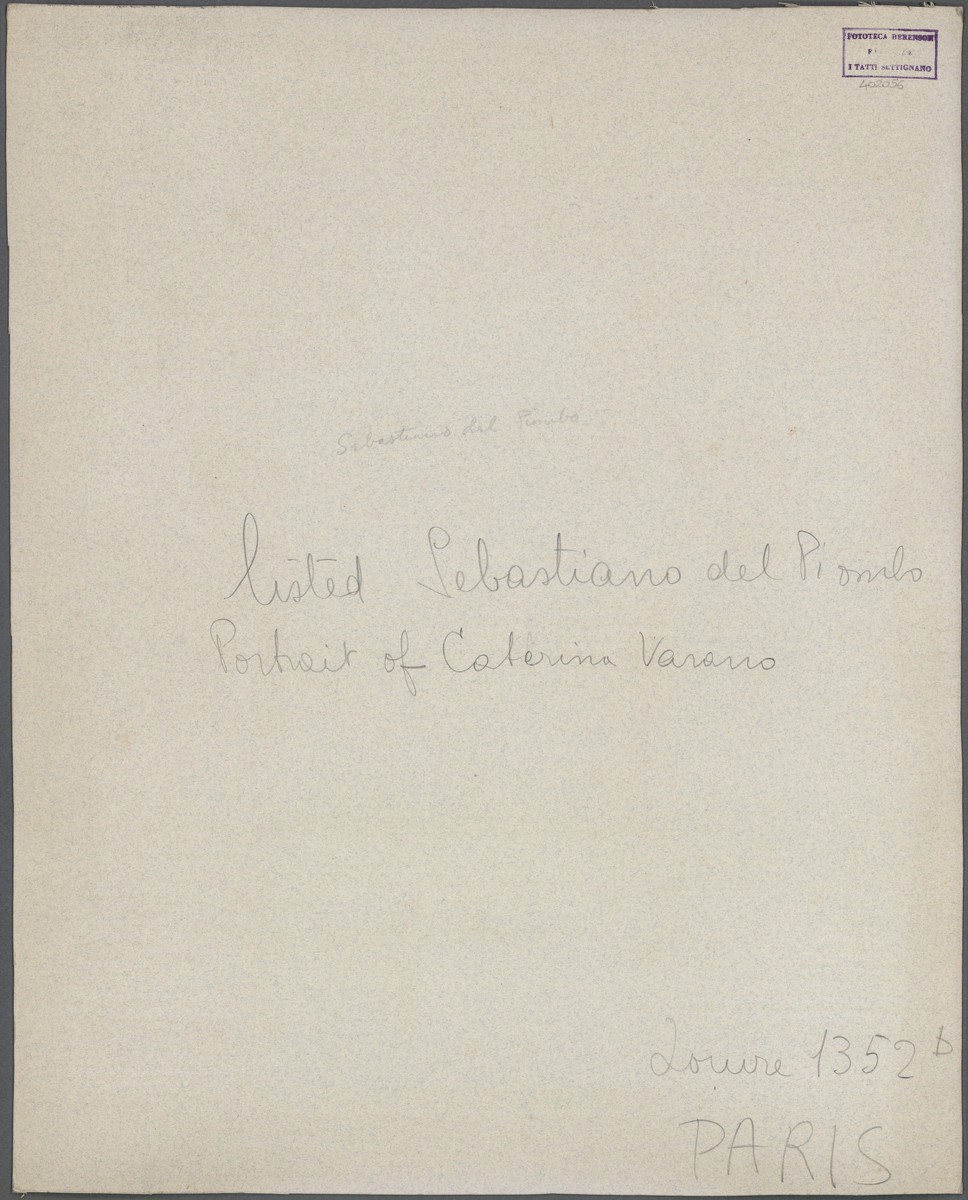 FOTOTECA BERENSON
I TATTI SETTIGNANO
402056
Sebastiano del Piombo
listed Sebastiano del Piombo
Portrait of Caterina Varano
Louvre 1352 b
PARIS